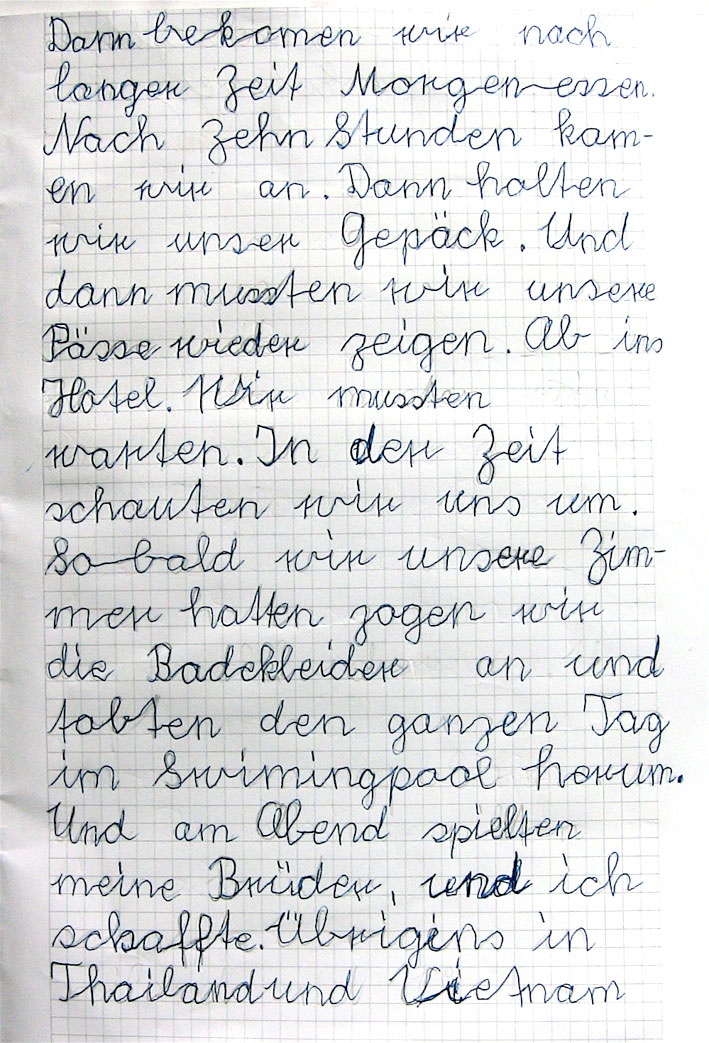 Dann bekomen wir nach
langer Zeit Morgen-essen.
Nach Zehn Stunden kam-
en wir an. Dann holten
wir unser Gepäck. Und
dann mussten wir unsere
Pässe wieder zeigen. Ab ins
Hotel. Wir mussten
warten. In der Zeit
schauten wir uns um.
So-bald wir unsere Zim-
mer hatten zogen wir
die Badekleider an und
tobten den ganzen Tag
im Swimingpool herum.
Und am Abend spielten
meine Brüder, und ich
schaffte. Übrigens in
Thailand und Vietnam